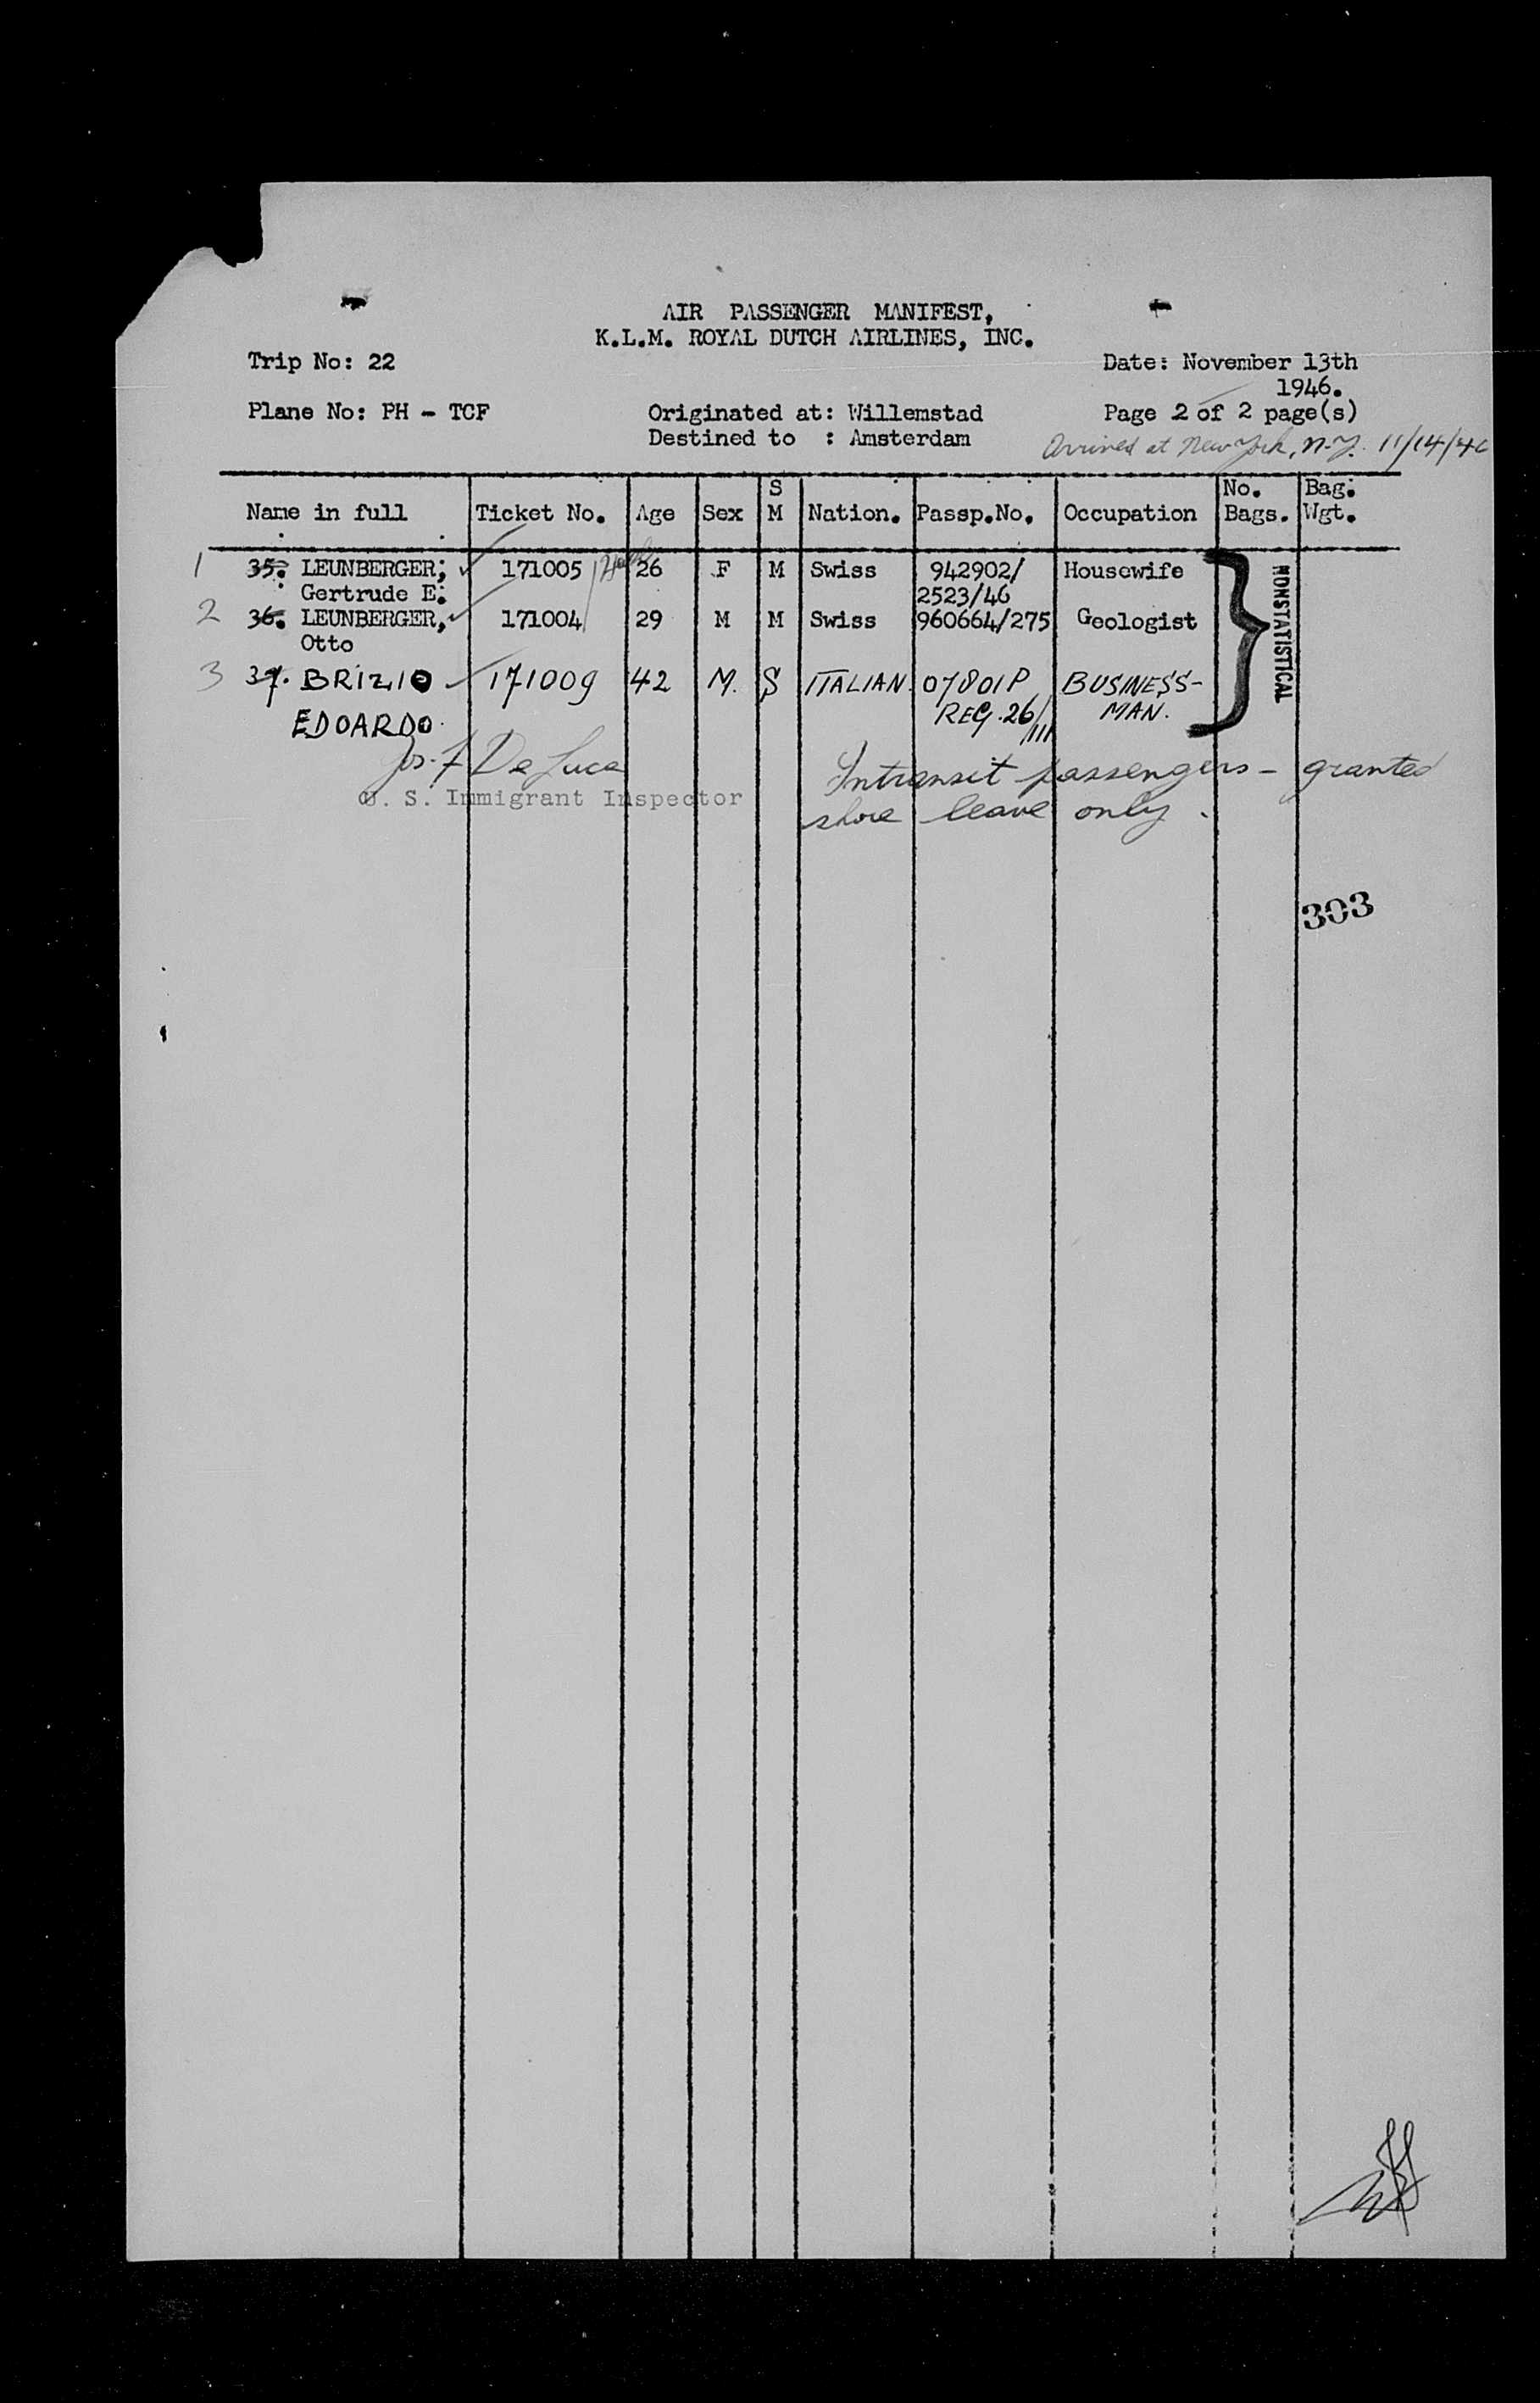 AIR PASSENGER MANIFEST,
K.L.M. ROYAL DUTCH AIRLINES, INC.
Trip No: 22 Date: November 13th
1946.
Plane No: PH - TCF Originated at: Willemstad Page 2 of 2 page(s)
Destined to : Amsterdam Arrived at New York, N.Y. 11/14/46
Name in full Ticket No. Age Sex S M Nation. Passp.No. Occupation No. Bags. Bag. Wgt.
1 35. LEUNBERGER; 171005 26 F M Swiss 942902/ Housewife
Gertrude E. 2523/46
2 36. LEUNBERGER, 171004 29 M M Swiss 960664/275 Geologist
Otto
3 37. BRIZIO 171009 42 M. S ITALIAN. 07801P BUSINESS-
EDOARDO. REG.26/III MAN.
NONSTATISTICAL
Jos. F De Luca Intransit passengers - granted
U. S. Immigrant Inspector shore leave only.
303